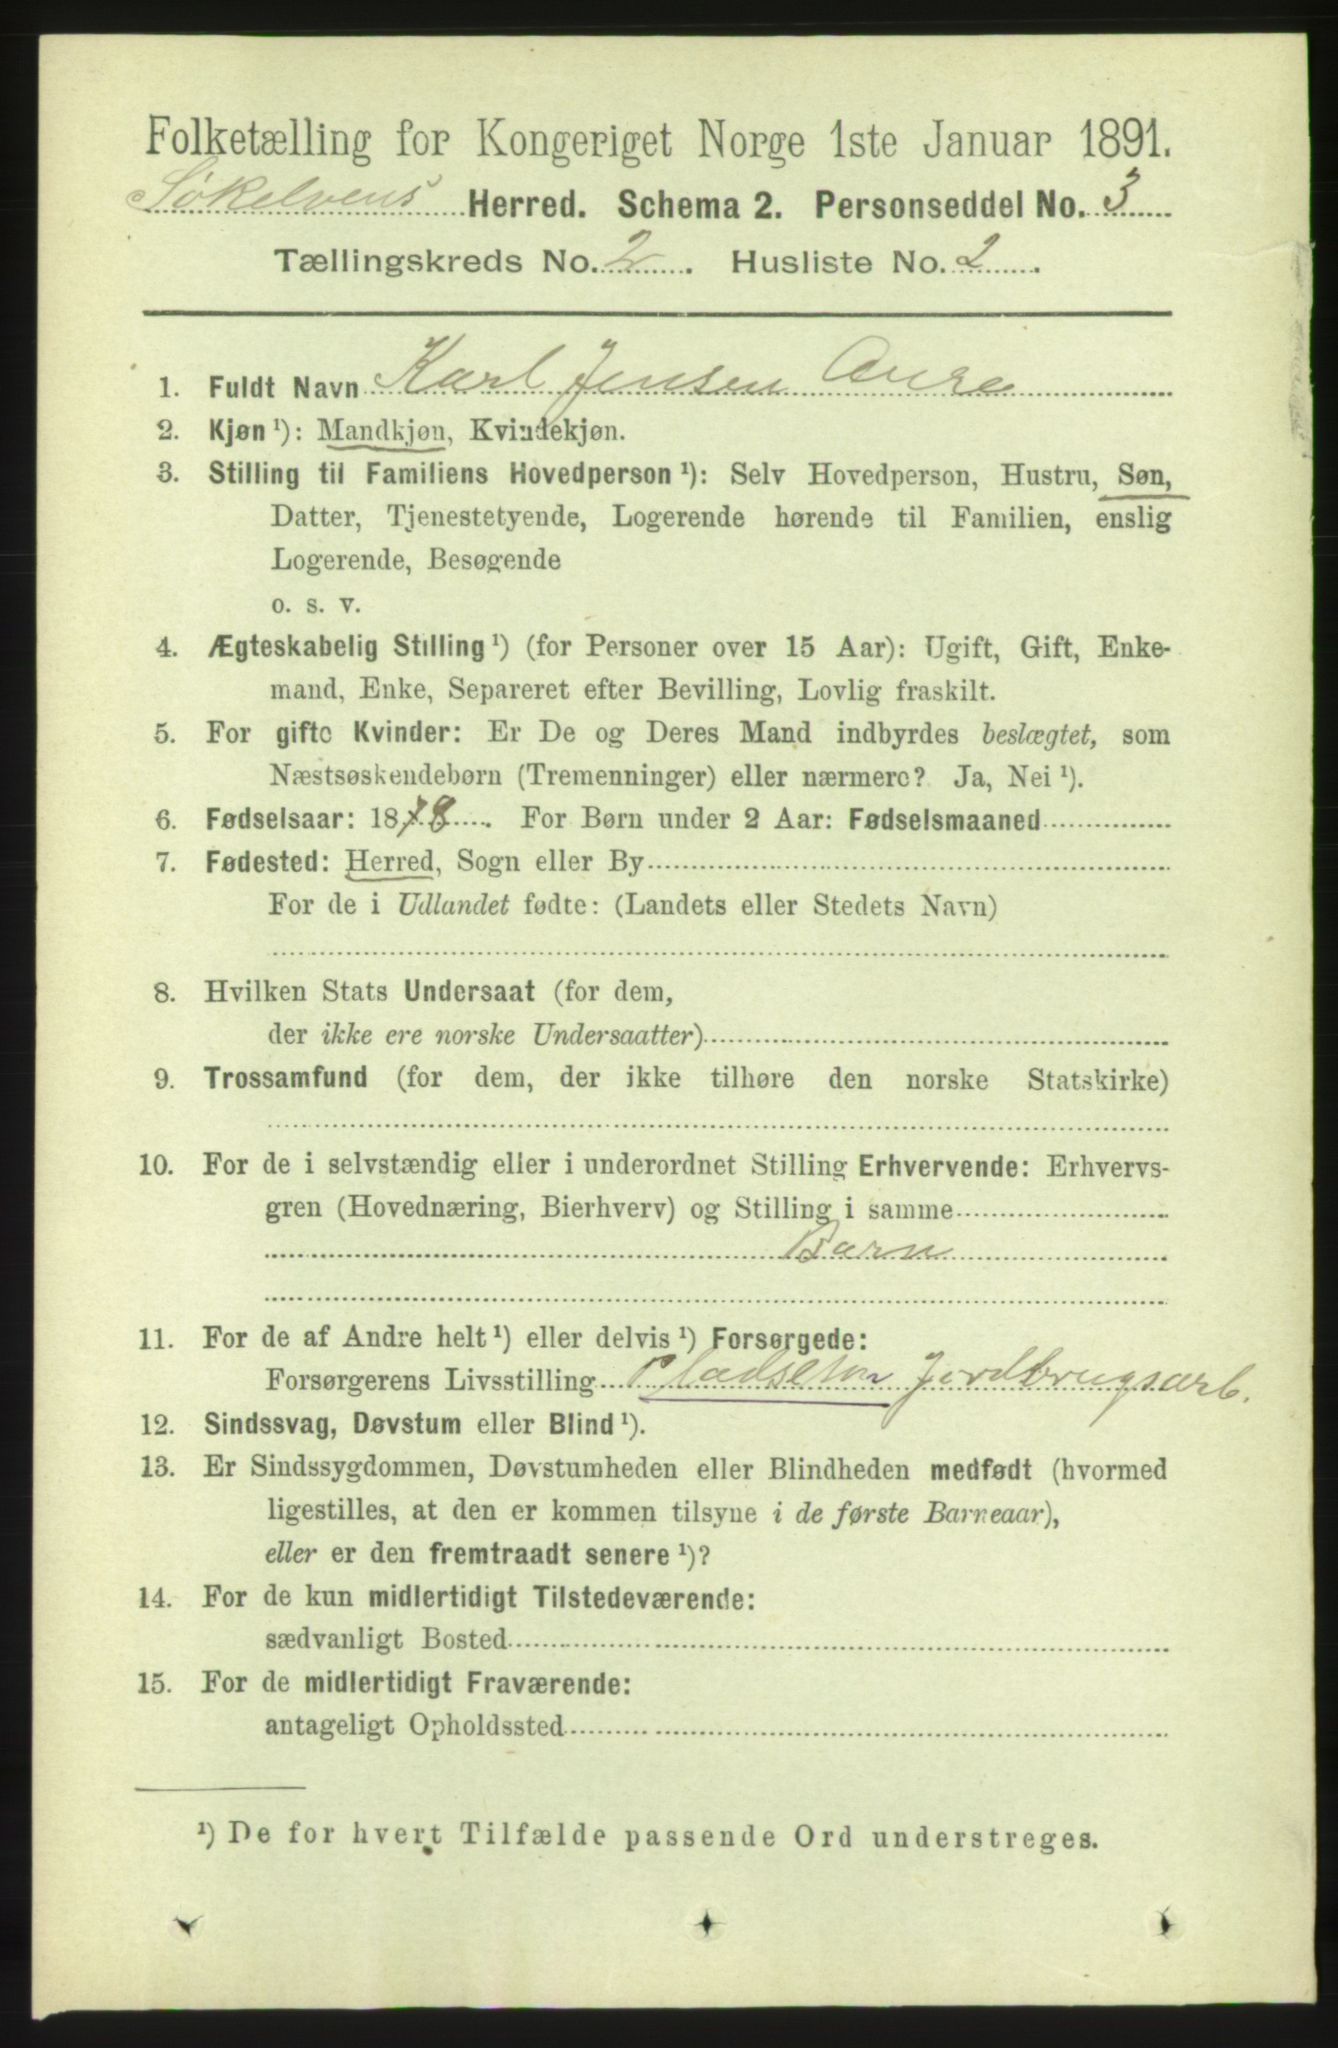 Folketælling for Kongeriget Norge 1ste Januar 1891.
Søkelvens Herred. Schema 2. Personseddel No. 3
Tællingskreds No. 2. Husliste No. 2.
1. Fuldt Navn Karl Jensen Aure
2. Kjøn ¹): Mandkjøn, Kvindekjøn.
3. Stilling til Familiens Hovedperson ¹): Selv Hovedperson, Hustru, Søn,
Datter, Tjenestetyende, Logerende hørende til Familien, enslig
Logerende, Besøgende
o. s. v.
4. Ægteskabelig Stilling ¹) (for Personer over 15 Aar): Ugift, Gift, Enke-
mand, Enke, Separeret efter Bevilling, Lovlig fraskilt.
5. For gifte Kvinder: Er De og Deres Mand indbyrdes beslægtet, som
Næstsøskendebørn (Tremenninger) eller nærmere? Ja, Nei ¹).
6. Fødselsaar: 1878. For Børn under 2 Aar: Fødselsmaaned
7. Fødested: Herred, Sogn eller By
For de i Udlandet fødte: (Landets eller Stedets Navn)
8. Hvilken Stats Undersaat (for dem,
der ikke ere norske Undersaatter)
9. Trossamfund (for dem, der ikke tilhøre den norske Statskirke)
10. For de i selvstændig eller i underordnet Stilling Erhvervende: Erhvervs-
gren (Hovednæring, Bierhverv) og Stilling i samme
Barn
11. For de af Andre helt ¹) eller delvis ¹) Forsørgede:
Forsørgerens Livsstilling Jordbrugsarb.
12. Sindssvag, Døvstum eller Blind ¹).
13. Er Sindssygdommen, Døvstumheden eller Blindheden medfødt (hvormed
ligestilles, at den er kommen tilsyne i de første Barneaar),
eller er den fremtraadt senere ¹)?
14. For de kun midlertidigt Tilstedeværende:
sædvanligt Bosted
15. For de midlertidigt Fraværende:
antageligt Opholdssted
¹) De for hvert Tilfælde passende Ord understreges.